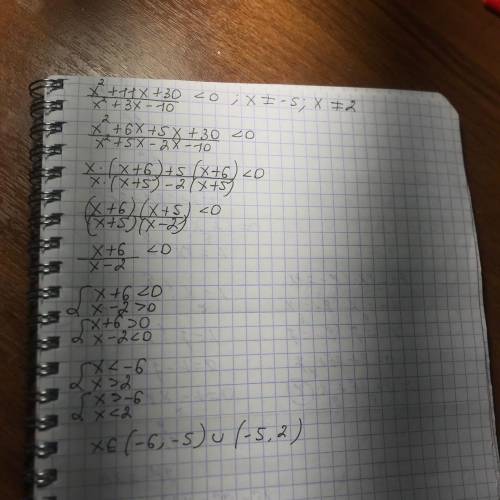 x²+11x+30 / x²+3x-10 <0 ; x≠-5; x≠2
x²+6x+5x+30 / x²+5x-2x-10 <0
x·(x+6)+5(x+6) / x·(x+5)-2(x+5) <0
(x+6)(x+5) / (x+5)(x-2) <0
x+6 / x-2 <0
{ x+6<0
x-2>0
{ x+6>0
x-2<0
{ x<-6
x>2
{ x>-6
x<2
x∈(-6,-5)∪(-5,2)